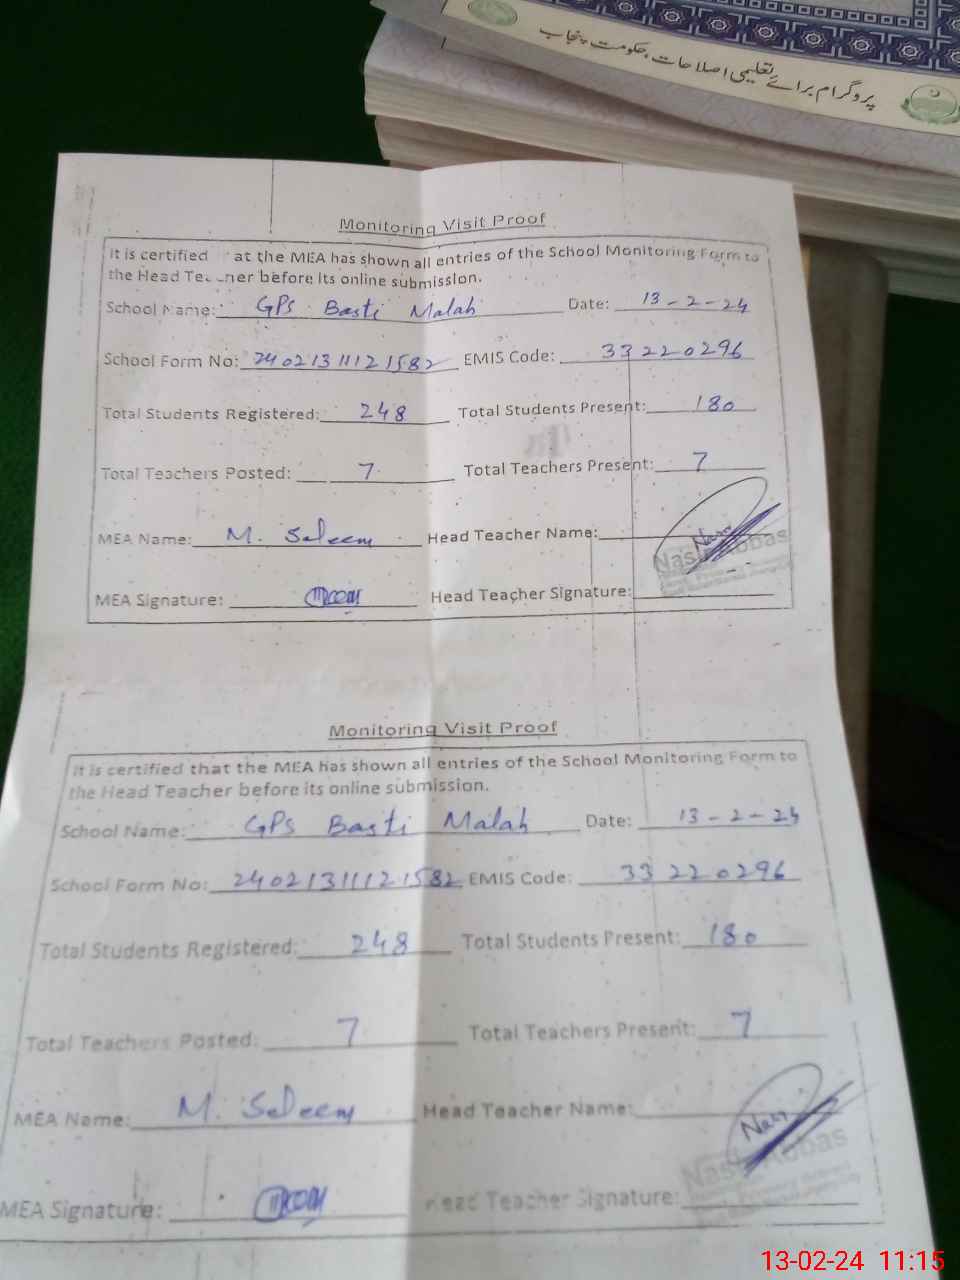 پروگرام برائے تعلیمی اصلاحات، حکومت پنجاب
Monitoring Visit Proof
It is certified at the MEA has shown all entries of the School Monitoring Form to
the Head Teacher before its online submission.
School Name: GPS Basti Malah Date: 13-2-24
School Form No: 24021311121582 EMIS Code: 33220296
Total Students Registered: 248 Total Students Present: 180
Total Teachers Posted: 7 Total Teachers Present: 7
MEA Name: M. Saleem Head Teacher Name:
Abbas
MEA Signature: Head Teacher Signature:
Monitoring Visit Proof
It is certified that the MEA has shown all entries of the School Monitoring Form to
the Head Teacher before its online submission.
School Name: GPS Basti Malah Date: 13-2-24
School Form No: 24021311121582 EMIS Code: 33220296
Total Students Registered: 248 Total Students Present: 180
Total Teachers Posted: 7 Total Teachers Present: 7
MEA Name: M. Saleem Head Teacher Name:
Abbas
MEA Signature: Head Teacher Signature:
13-02-24 11:15